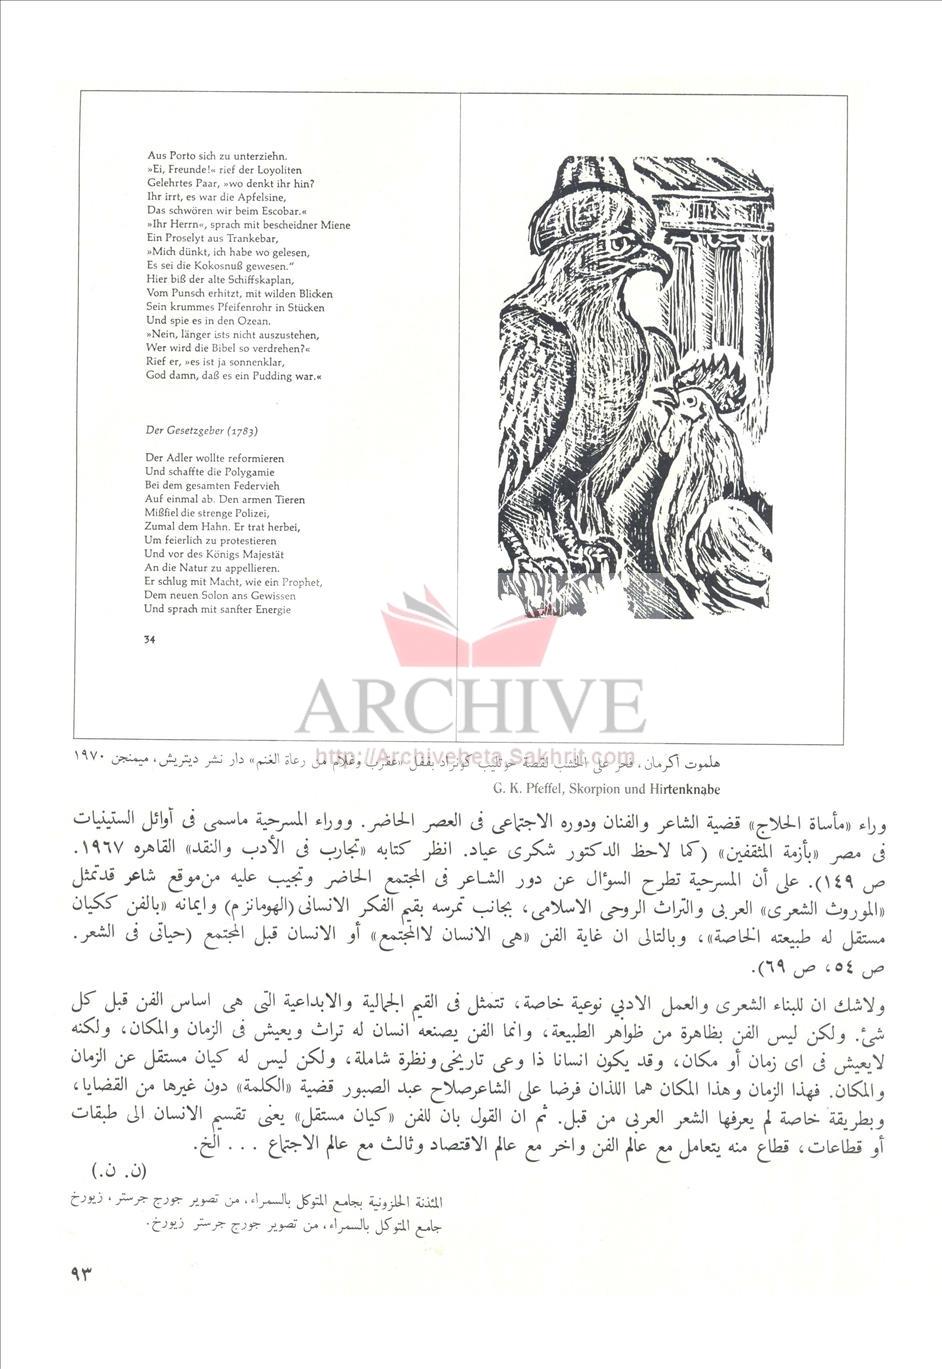 Aus Porto sich zu unterziehn.
»Ei, Freunde!« rief der Loyoliten
Gelehrtes Paar, »wo denkt ihr hin?
Ihr irrt, es war die Apfelsine,
Das schwören wir beim Escobar.«
»Ihr Herrn«, sprach mit bescheidner Miene
Ein Proselyt aus Trankebar,
»Mich dünkt, ich habe wo gelesen,
Es sei die Kokosnuß gewesen."
Hier biß der alte Schiffskaplan,
Vom Punsch erhitzt, mit wilden Blicken
Sein krummes Pfeifenrohr in Stücken
Und spie es in den Ozean.
»Nein, länger ists nicht auszustehen,
Wer wird die Bibel so verdrehen?«
Rief er, »es ist ja sonnenklar,
God damn, daß es ein Pudding war.«
Der Gesetzgeber (1783)
Der Adler wollte reformieren
Und schaffte die Polygamie
Bei dem gesamten Federvieh
Auf einmal ab. Den armen Tieren
Mißfiel die strenge Polizei,
Zumal dem Hahn. Er trat herbei,
Um feierlich zu protestieren
Und vor des Königs Majestät
An die Natur zu appellieren.
Er schlug mit Macht, wie ein Prophet,
Dem neuen Solon ans Gewissen
Und sprach mit sanfter Energie
34
ARCHIVE
http://Archivebeta.Sakhrit.com
هلموت آكرمان، حفر على الخشب لقصة جوتليب كونراد بففل «عقرب وغلام من رعاة الغنم» دار نشر ديتريش، ميمنجن ١٩٧٠
G. K. Pfeffel, Skorpion und Hirtenknabe
وراء «مأساة الحلاج» قضية الشاعر والفنان ودوره الاجتماعى فى العصر الحاضر. ووراء المسرحية ماسمى فى أوائل الستينيات
فى مصر «بأزمة المثقفين» (كما لاحظ الدكتور شكرى عياد. انظر كتابه «تجارب فى الأدب والنقد» القاهره ١٩٦٧.
ص ١٤٩). على أن المسرحية تطرح السؤال عن دور الشاعر فى المجتمع الحاضر وتجيب عليه من موقع شاعر قد تمثل
«الموروث الشعرى» العربى والتراث الروحى الاسلامى، بجانب تمرسه بقيم الفكر الانسانى (الهومانزم) وايمانه «بالفن ككيان
مستقل له طبيعته الخاصة»، وبالتالى ان غاية الفن «هى الانسان لا المجتمع» أو الانسان قبل المجتمع (حياتى فى الشعر.
ص ٥٤، ص ٦٩).
ولاشك ان للبناء الشعرى والعمل الادبي نوعية خاصة، تتمثل فى القيم الجمالية والابداعية التى هى اساس الفن قبل كل
شئ. ولكن ليس الفن بظاهرة من ظواهر الطبيعة، وانما الفن يصنعه انسان له تراث ويعيش فى الزمان والمكان، ولكنه
لايعيش فى اى زمان أو مكان، وقد يكون انسانا ذا وعى تاريخى ونظرة شاملة، ولكن ليس له كيان مستقل عن الزمان
والمكان. فهذا الزمان وهذا المكان هما اللذان فرضا على الشاعر صلاح عبد الصبور قضية «الكلمة» دون غيرها من القضايا،
وبطريقة خاصة لم يعرفها الشعر العربى من قبل. ثم ان القول بان للفن «كيان مستقل» يعنى تقسيم الانسان الى طبقات
أو قطاعات، قطاع منه يتعامل مع عالم الفن واخر مع عالم الاقتصاد وثالث مع عالم الاجتماع ... الخ.
(ن. ن.)
المئذنة الحلزونية بجامع المتوكل بالسمراء، من تصوير جورج جرستر، زيورخ
جامع المتوكل بالسمراء، من تصوير جورج جرستر زيورخ.
٩٣